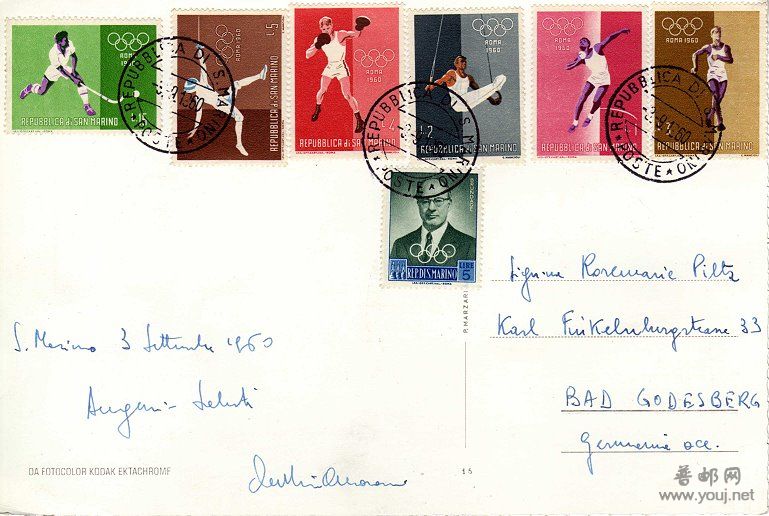 ROMA 1960
L.15
REPUBBLICA di SAN MARINO
ROMA 1960
L.5
REPUBBLICA di SAN MARINO
ROMA 1960
L.4
REPUBBLICA di SAN MARINO
ROMA 1960
L.2
REPUBBLICA di SAN MARINO
ROMA 1960
L.1
REPUBBLICA di SAN MARINO
ROMA 1960
REPUBBLICA di SAN MARINO
REPUBBLICA DI S. MARINO
-2.9.1960
POSTE
REPUBBLICA DI S. MARINO
POSTE
REPUBBLICA DI S. MARINO
-2.9.1960
POSTE
LIRE 5
REP. DI S. MARINO
P. MARZARI
Signorina Rosemarie Piltz
Karl Finkelnburgstrasse 33
BAD GODESBERG
Germania occ.
S. Marino 3 Settembre 1960
Auguri - Saluti
DA FOTOCOLOR KODAK EKTACHROME
15
普邮网
www.youj.net